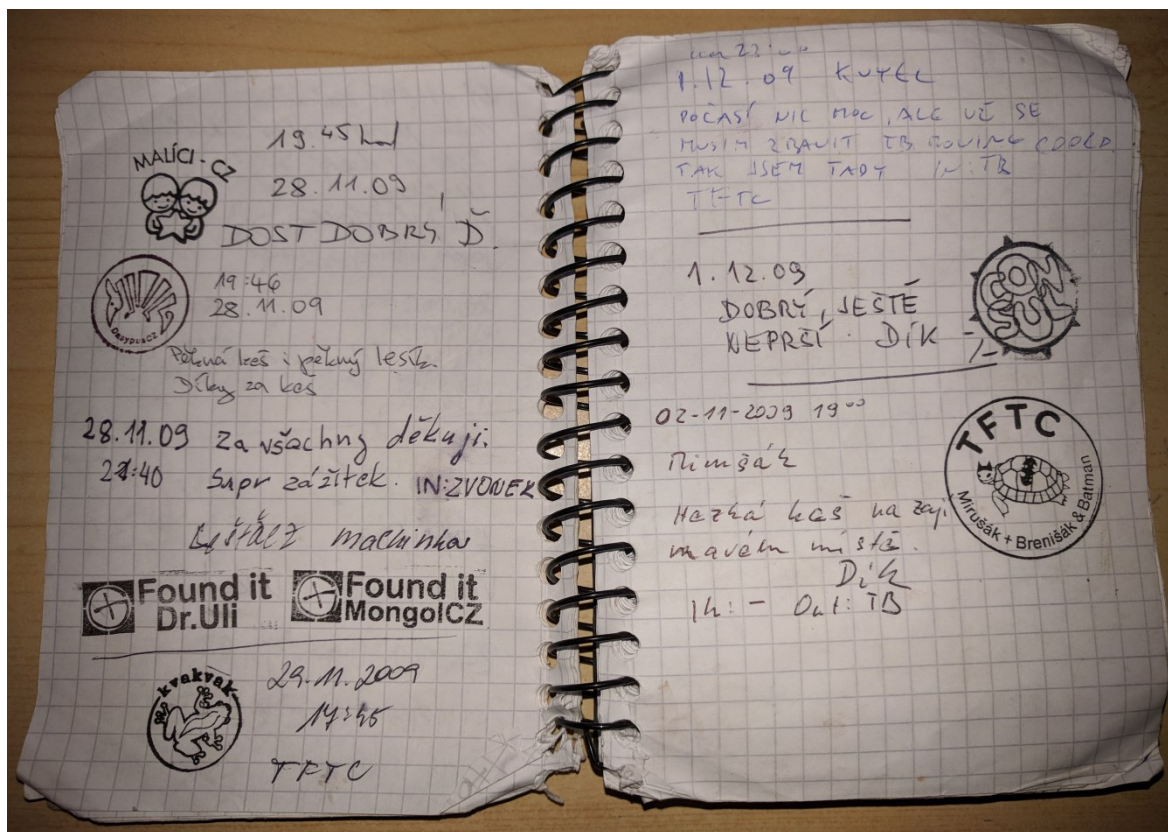 MALÍCI - CZ
19.45
28.11.09
DOST DOBRÝ, Ď.
19:46
28.11.09
DasypusCZ
Pěkná keš i pěkný lesík.
Díky za keš
28.11.09 Za všechny děkuji.
21:40 Supr zážitek. IN:ZVONEK
machinka
Found it
Dr.Uli
Found it
MongolCZ
kvakvak
29.11.2009
17:45
TFTC
1.12.09
POČASÍ NIC MOC, ALE UŽ SE
MUSÍM ZBAVIT TB
TAK JSEM TADY IN:TB
TFTC
1.12.09
DOBRÝ, JEŠTĚ
NEPRŠÍ. DÍK
02-11-2009 19⁰⁰
Mirušák
Hezká keš na zají
mavém místě.
Dík
In: - Out: TB
TFTC
Mirušák + Brenišák & Batman